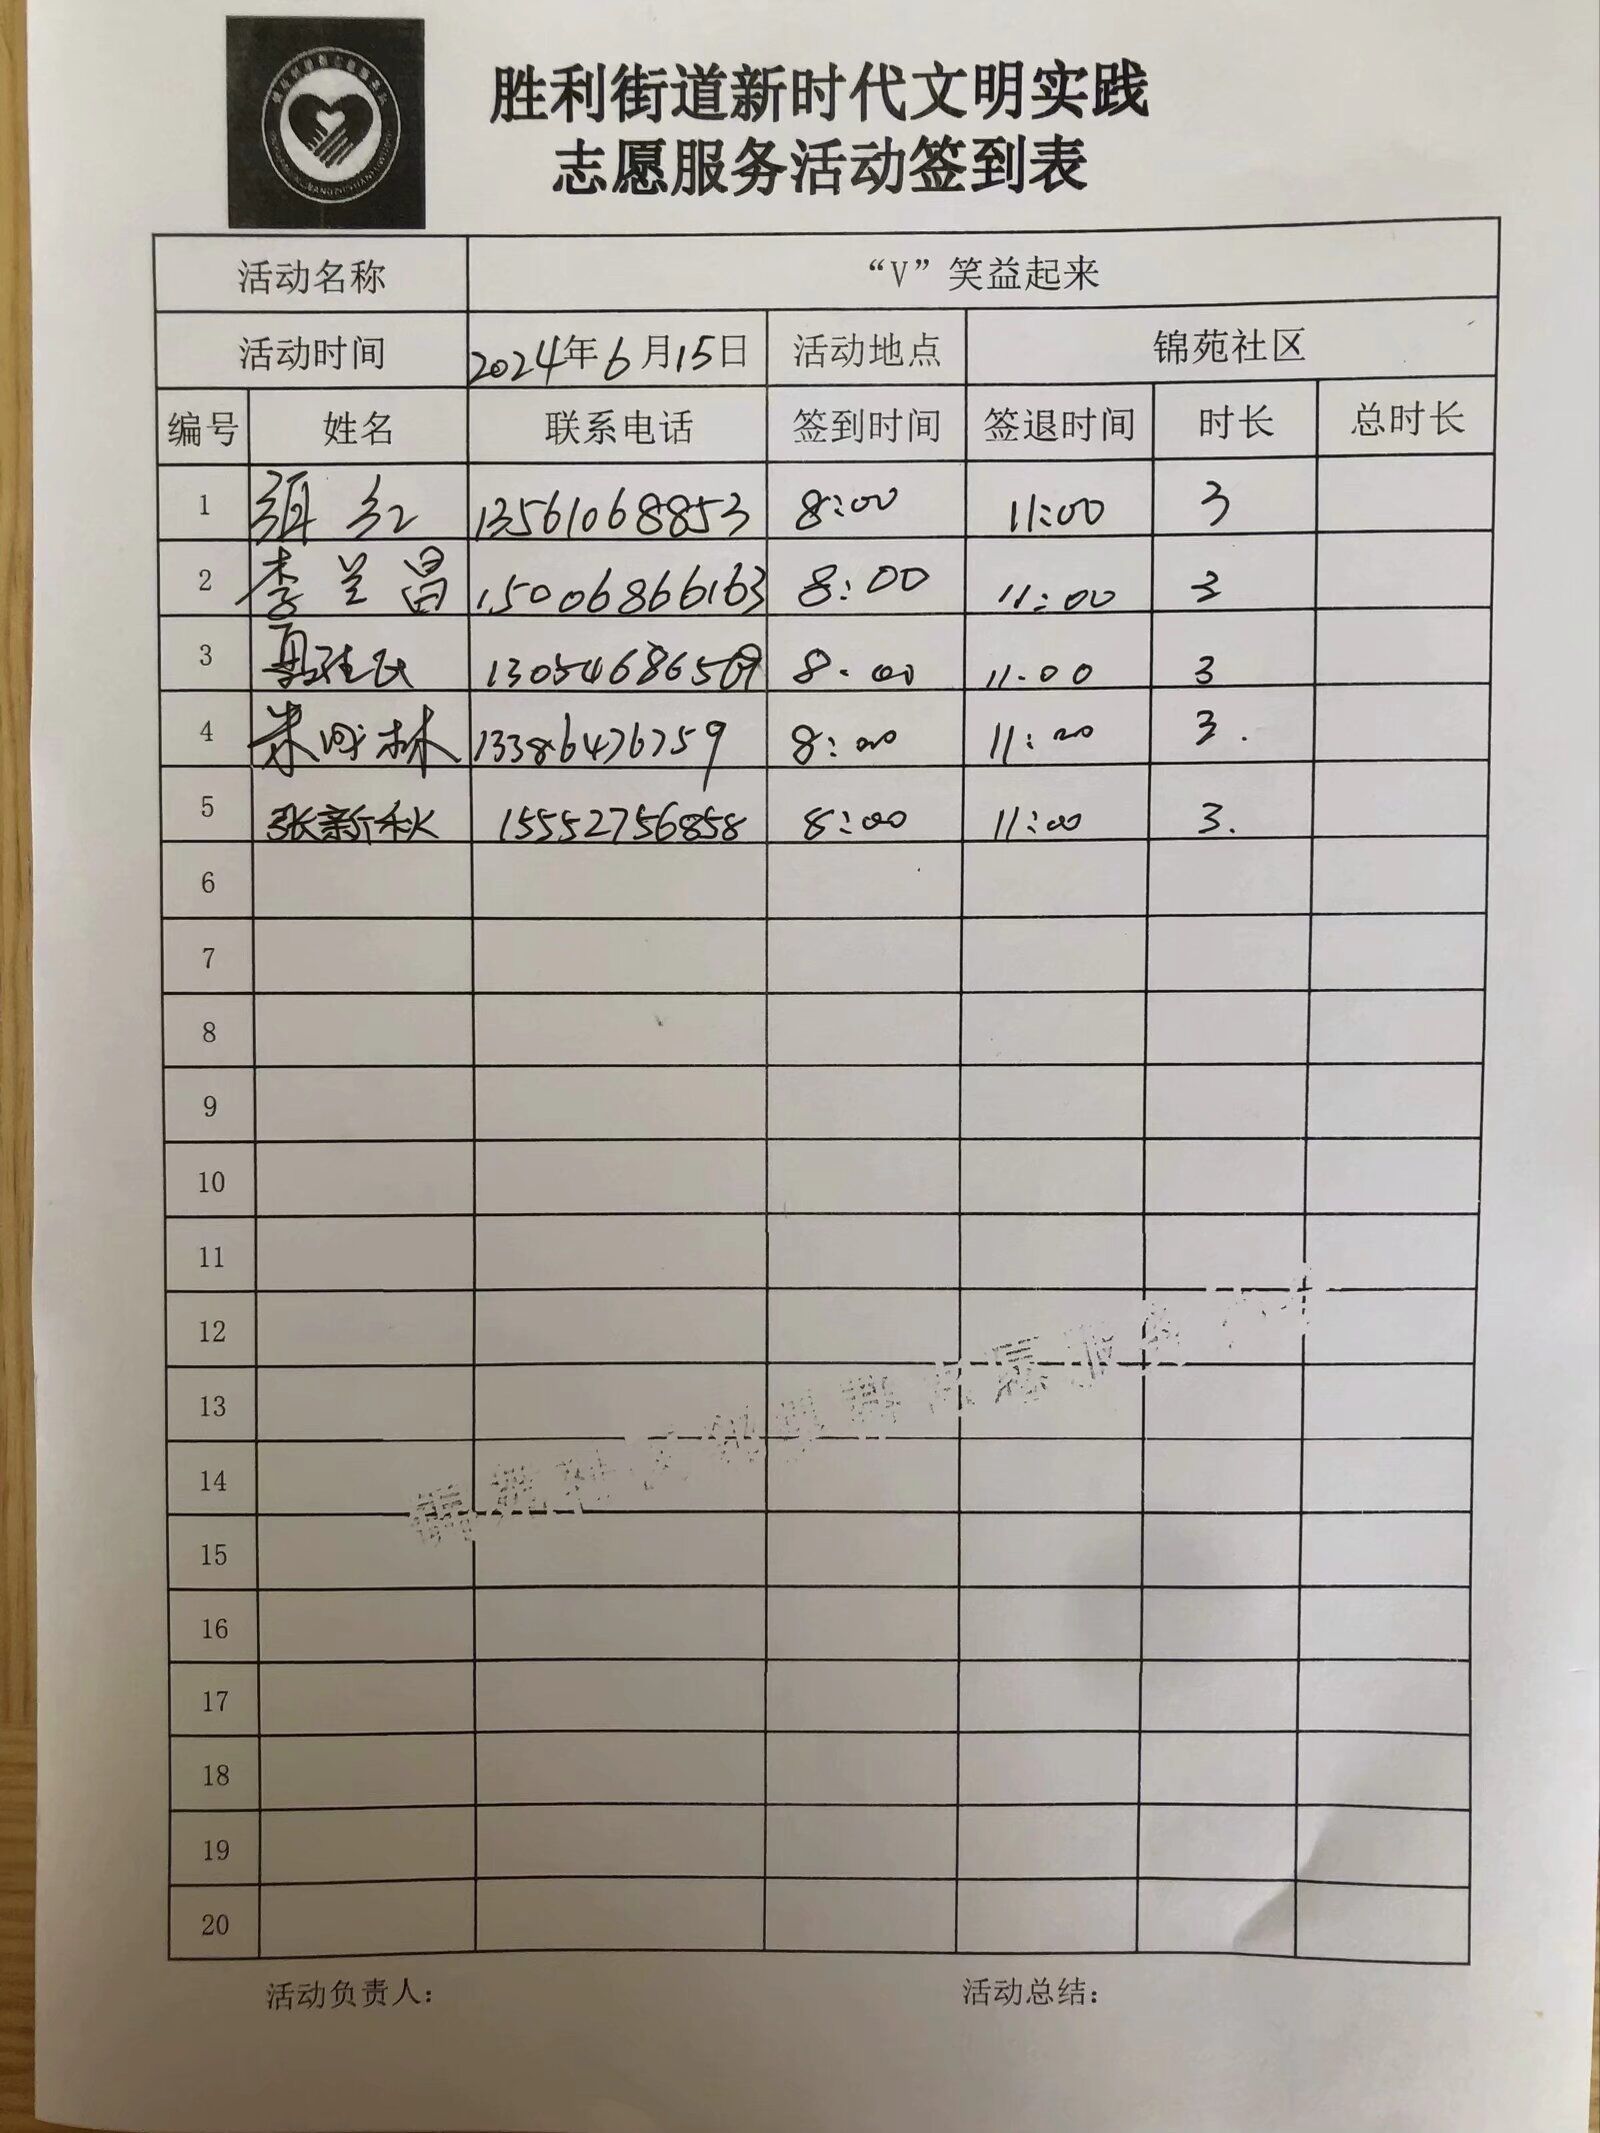 胜利街道新时代文明实践
志愿服务活动签到表
活动名称 “V”笑益起来
活动时间 2024年6月15日 活动地点 锦苑社区
编号 姓名 联系电话 签到时间 签退时间 时长 总时长
1 红 13561068853 8:00 11:00 3
2 李兰昌 15006866163 8:00 11:00 3
3 8:00 11:00 3
4 林 13386476759 8:00 11:00 3.
5 张新秋 15552756858 8:00 11:00 3.
6
7
8
9
10
11
12
13
14
15
16
17
18
19
20
活动负责人： 活动总结：